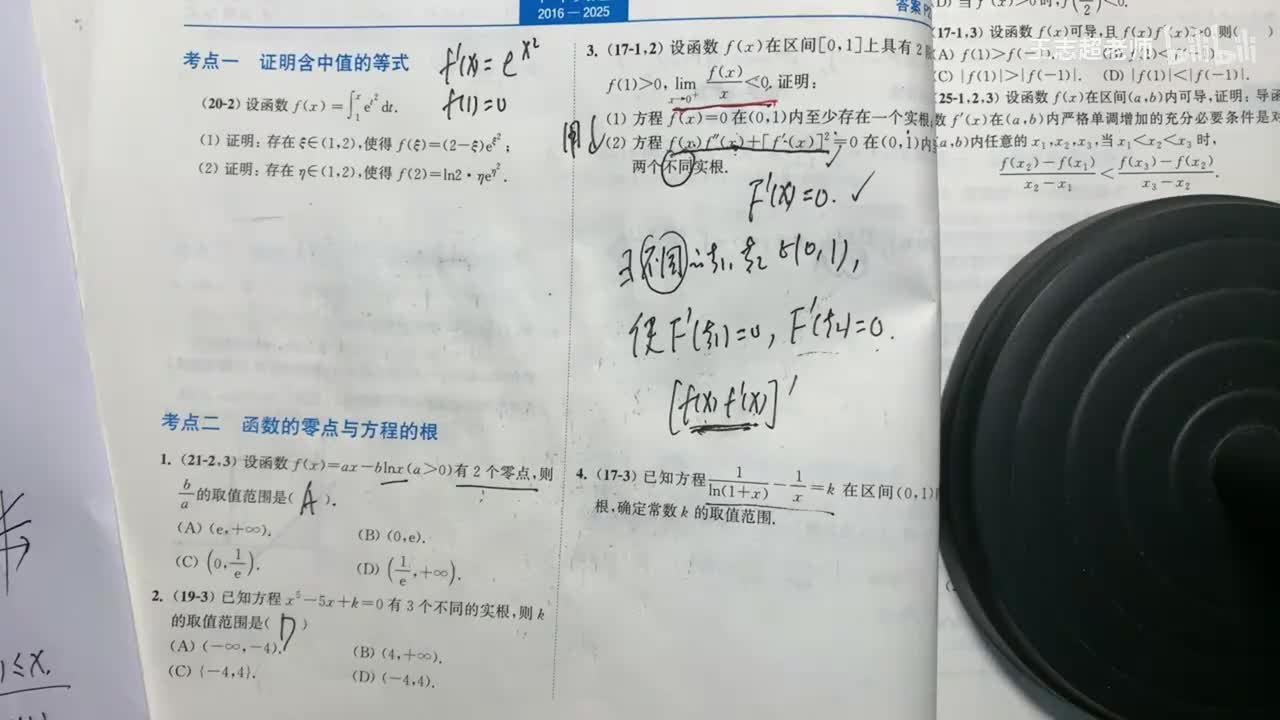 2016—2025
考点一 证明含中值的等式
f'(x)=e^{x^2}
f(1)=0
(20-2) 设函数 f(x)=∫_1^x e^{t^2} dt.
(1) 证明:存在 ξ∈(1,2),使得 f(ξ)=(2−ξ)e^{ξ^2};
(2) 证明:存在 η∈(1,2),使得 f(2)=ln2·ηe^{η^2}.
考点二 函数的零点与方程的根
1. (21-2,3) 设函数 f(x)=ax−blnx(a>0)有 2 个零点,则
b/a 的取值范围是( A ).
(A) (e,+∞).
(B) (0,e).
(C) (0,1/e).
(D) (1/e,+∞).
2. (19-3) 已知方程 x^5−5x+k=0 有 3 个不同的实根,则 k
的取值范围是( D )
(A) (−∞,−4).
(B) (4,+∞).
(C) {−4,4}.
(D) (−4,4).
3. (17-1,2) 设函数 f(x)在区间[0,1]上具有 2
f(1)>0, lim_{x→0^+} f(x)/x <0,证明:
(1) 方程 f(x)=0 在(0,1)内至少存在一个实根
用
(2) 方程 f(x)f''(x)+[f'(x)]^2=0 在(0,1)内
两个不同实根.
F'(x)=0. ✓
∃不同ξ1, ξ2 ∈(0,1),
使F'(ξ1)=0, F'(ξ2)=0.
[f(x) f'(x)]'
4. (17-3) 已知方程 1/ln(1+x) − 1/x =k 在区间(0,1)
根,确定常数 k 的取值范围.
答案P
王志超老师 bilibili
(17-1,3) 设函数 f(x)可导,且 f(x)f'(x)>0,则( )
(A) f(1)>f(−1).
(C) |f(1)|>|f(−1)|. (D) |f(1)|<|f(−1)|.
(25-1,2,3) 设函数 f(x)在区间(a,b)内可导,证明:导函
数 f'(x)在(a,b)内严格单调增加的充分必要条件是对
(a,b)内任意的 x1,x2,x3,当 x1<x2<x3 时,
(f(x2)−f(x1))/(x2−x1) < (f(x3)−f(x2))/(x3−x2).
≤x.